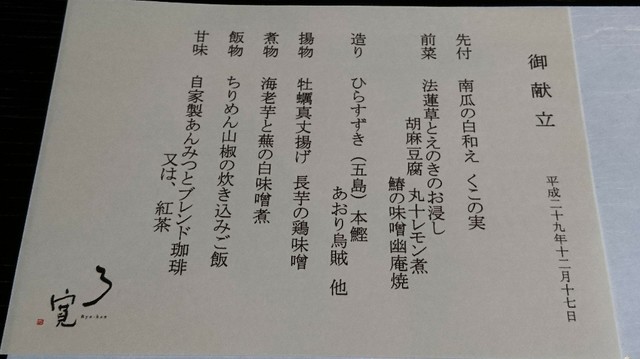 御献立
平成二十九年十二月十七日
先付　南瓜の白和え　くこの実
前菜　法蓮草とえのきのお浸し
胡麻豆腐　丸十レモン煮
鰆の味噌幽庵焼
造り　ひらすずき（五島）本鰹
あおり烏賊　他
揚物　牡蠣真丈揚げ　長芋の鶏味噌
煮物　海老芋と蕪の白味噌煮
飯物　ちりめん山椒の炊き込みご飯
甘味　自家製あんみつとブレンド珈琲
又は、紅茶
了寛
Ryo-kan